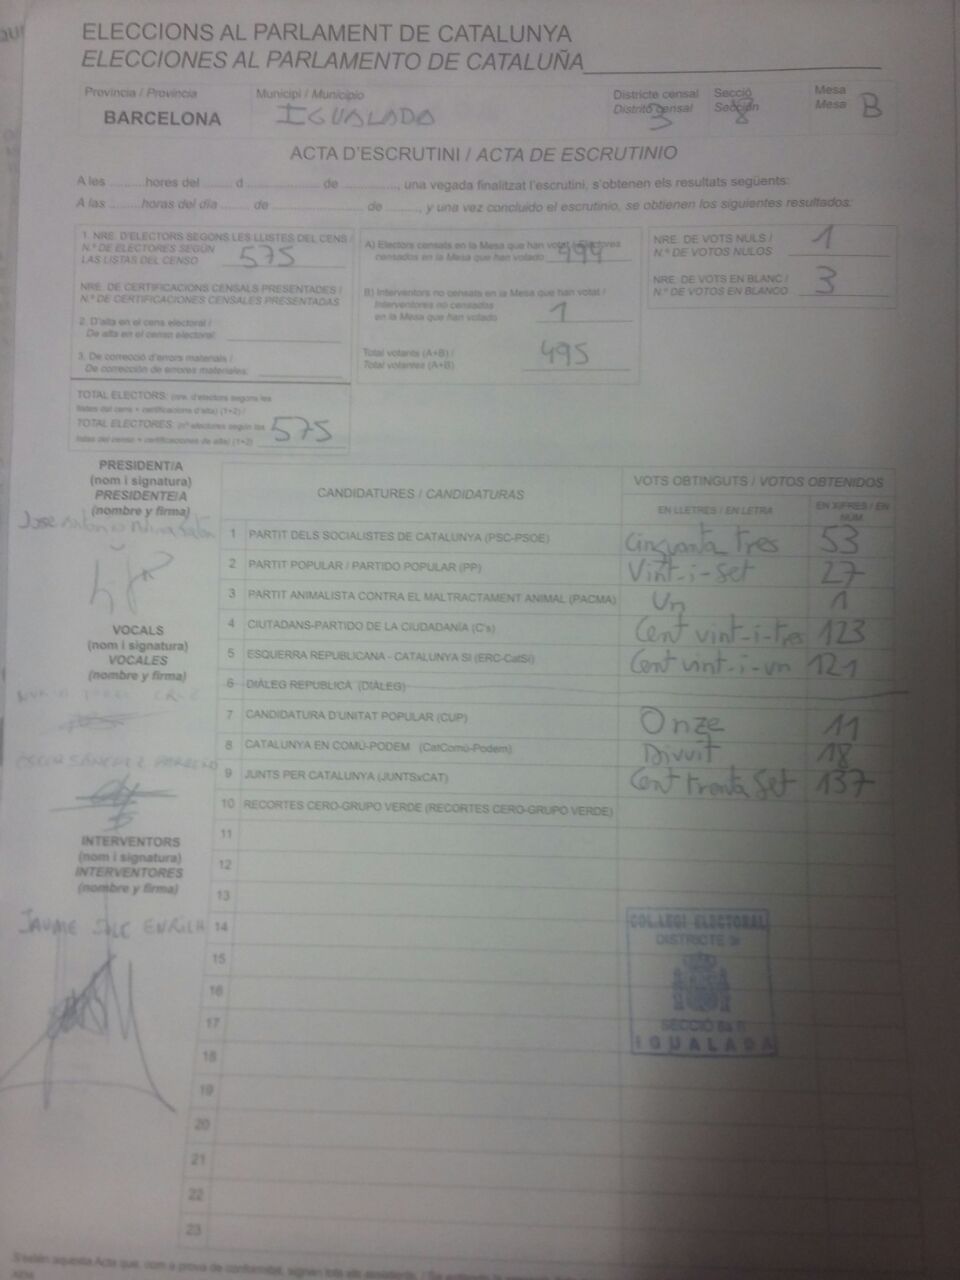 ELECCIONS AL PARLAMENT DE CATALUNYA
ELECCIONES AL PARLAMENTO DE CATALUÑA
Província / Provincia
BARCELONA
Municipi / Municipio
IGUALADA
Districte censal
Distrito censal
3
Secció
Sección
8
Mesa
Mesa
B
ACTA D'ESCRUTINI / ACTA DE ESCRUTINIO
A les ..........hores del ........ d ..................... de ..............., una vegada finalitzat l'escrutini, s'obtenen els resultats següents:
A las ..........horas del día ........ de ..................... de .........., y una vez concluido el escrutinio, se obtienen los siguientes resultados:
1. NRE. D'ELECTORS SEGONS LES LLISTES DEL CENS /
N.º DE ELECTORES SEGÚN
LAS LISTAS DEL CENSO 575
NRE. DE CERTIFICACIONS CENSALS PRESENTADES /
N.º DE CERTIFICACIONES CENSALES PRESENTADAS
2. D'alta en el cens electoral /
De alta en el censo electoral:
3. De correcció d'errors materials /
De corrección de errores materiales:
TOTAL ELECTORS: (nre. d'electors segons les
llistes del cens + certificacions d'alta) (1+2) /
TOTAL ELECTORES: (nº electores según las
listas del censo + certificaciones de alta) (1+2) 575
A) Electors censats en la Mesa que han votat / Electores
censados en la Mesa que han votado 494
B) Interventors no censats en la Mesa que han votat /
Interventores no censados
en la Mesa que han votado 1
Total votants (A+B) /
Total votantes (A+B) 495
NRE. DE VOTS NULS /
N.º DE VOTOS NULOS 1
NRE. DE VOTS EN BLANC /
N.º DE VOTOS EN BLANCO 3
PRESIDENT/A
(nom i signatura)
PRESIDENTE/A
(nombre y firma)
Jose Antonio
VOCALS
(nom i signatura)
VOCALES
(nombre y firma)
OSCAR SÁNCHEZ
INTERVENTORS
(nom i signatura)
INTERVENTORES
(nombre y firma)
JAUME SOLE ENRICH
CANDIDATURES / CANDIDATURAS
VOTS OBTINGUTS / VOTOS OBTENIDOS
EN LLETRES / EN LETRA
EN XIFRES / EN NÚM.
1 PARTIT DELS SOCIALISTES DE CATALUNYA (PSC-PSOE) Cinquanta tres 53
2 PARTIT POPULAR / PARTIDO POPULAR (PP) Vint-i-set 27
3 PARTIT ANIMALISTA CONTRA EL MALTRACTAMENT ANIMAL (PACMA) Un 1
4 CIUTADANS-PARTIDO DE LA CIUDADANÍA (C's) Cent vint-i-tres 123
5 ESQUERRA REPUBLICANA - CATALUNYA SÍ (ERC-CatSí) Cent vint-i-un 121
6 DIÀLEG REPÚBLICA (DIÀLEG)
7 CANDIDATURA D'UNITAT POPULAR (CUP) Onze 11
8 CATALUNYA EN COMÚ-PODEM (CatComú-Podem) Divuit 18
9 JUNTS PER CATALUNYA (JUNTSxCAT) Cent trenta set 137
10 RECORTES CERO-GRUPO VERDE (RECORTES CERO-GRUPO VERDE)
11
12
13
14
15
16
17
18
19
20
21
22
23
COL.LEGI ELECTORAL
DISTRICTE 3r
SECCIÓ 8a
IGUALADA
S'estén aquesta Acta que, com a prova de conformitat, signen tots els assistents. /